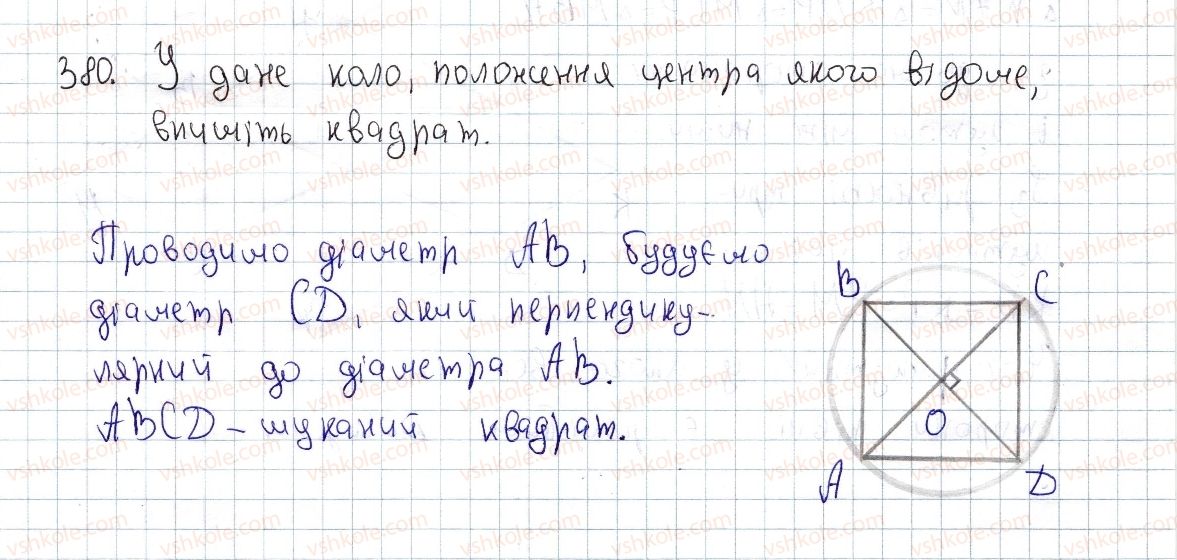 380. У дане коло, положення центра якого відоме,
впишіть квадрат.
Проводимо діаметр AB, будуємо
діаметр CD, який перпендику-
лярний до діаметра AB.
ABCD - шуканий квадрат.
B C
O
A D